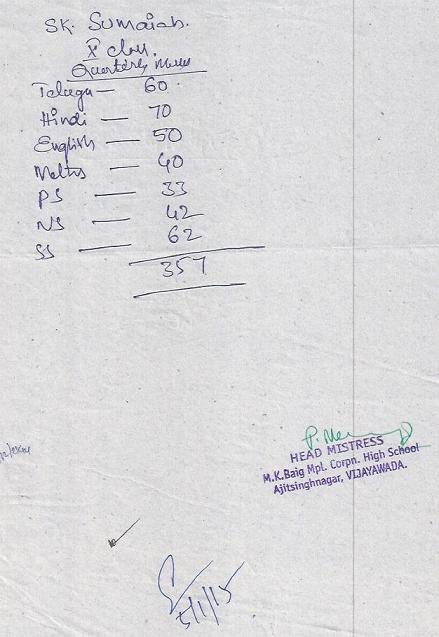 SK. Sumaiah.
X class.
Quarterly Marks
Telugu — 60
Hindi — 70
English — 50
Maths — 40
PS — 33
NS — 42
SS — 62
357
HEAD MISTRESS
M.K.Baig Mpl. Corpn. High School
Ajitsinghnagar, VIJAYAWADA.
5/1/15